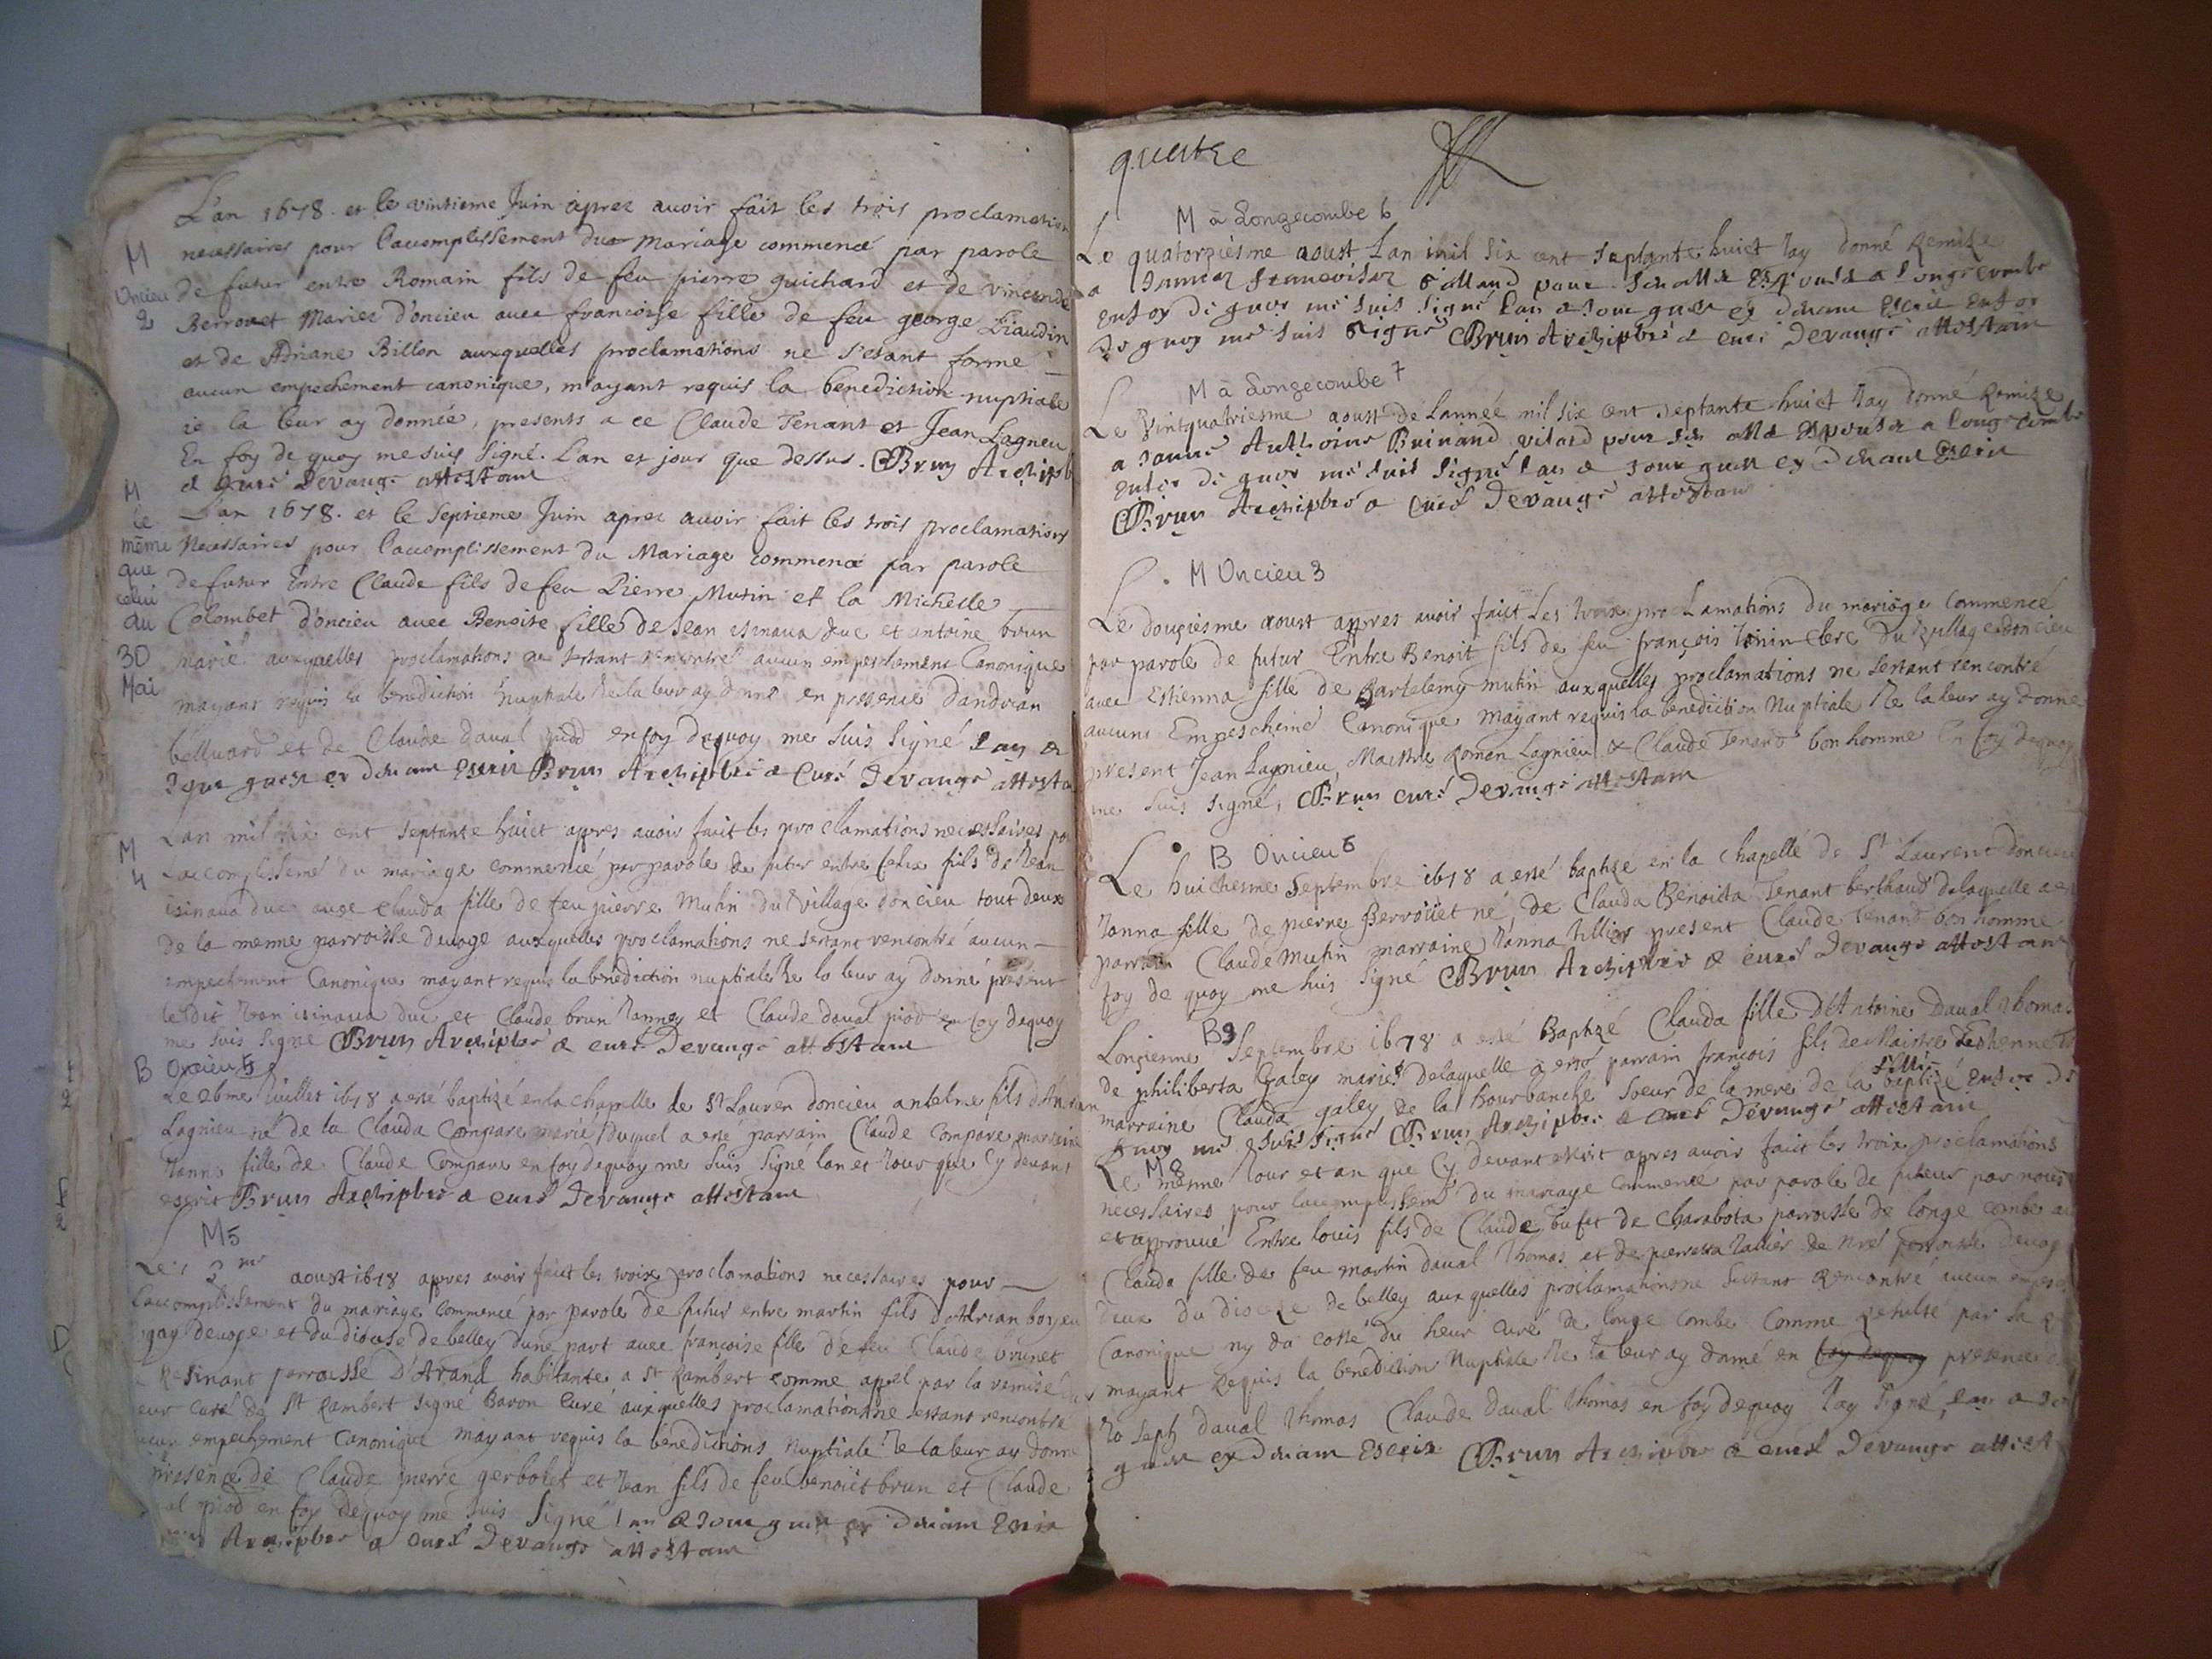 L'an 1678. et le vintieme Juin aprez avoir fait les trois proclamation
M
necessaires pour l'acomplissement du mariage commencé par parole
Oncieu
2
de futur entre Romain fils de feu pierre guichard et de vincende
Berrouet Mariez d'oncieu avec francoise fille de feu george Liaudin
et de Adriane Billon auxquelles proclamations ne s'etant formé
aucun empechement canonique, m'ayant requis la benediction nuptiale
ie la leur ay donnée, presents a ce Claude Tenant et Jean Lagneu
En foy de quoy me suis signé. L'an et jour que dessus. Brun Archipb
& Curé Devauge attestant
M
Le
même
que
celui
du
30
Mai
L'an 1678. et le septieme Juin aprez avoir fait les trois proclamations
Necessaires pour l'acomplissement du Mariage commencé par parole
de futur Entre Claude fils de feu Pierre Mutin et la Michelle
Colombet d'oncieu avec Benoite fille de Jean isinaua duc et antoine brun
marié auxquelles proclamations ne sestant rencontré aucun empeschement Canonique
mayant requis la benediction nuptiale Ie la leur ay donné en presence dandrian
belluard et de Claude daual piod en foy dequoy me suis signé lan &
Brun Archiplré & Curé Devauge attesta
M
4
Lan mil six cent septante huict appres avoir faict les proclamations necessaires po
Laccomplissemé du mariage commencé par parole de futur entre felix fils de Jean
isinaua duc avec Clauda fille de feu pierre Mutin du village doncieu tout deux
de la meme parroisse devoge auxquelles proclamations ne sestant rencontré aucun
empechment Canonique mayant requis la benediction nuptiale Ie la leur ay donné présent
le dit Jean isinaua duc et Claude brun Jannoy et Claude daual piod en foy dequoy
me suis signe Brun Archiplré & curé Devauge attestant
B Oncieu 5
Le 26me Juillet 1678 a esté baptizé en la chapelle de St Lauren doncieu antelme fils d'Adrian
Lagnieu né de la Clauda Compare marié duquel a esté parrain Claude Compare marraine
Janne fille de Claude Compare en foy dequoy me suis signé lan et Jour que cy devant
escrit Brun Archiplré & curé Devauge attestant
M5
Le 2me aoust 1678 appres avoir faict les troix proclamations necessaires pour
Laccomplissement du mariage commencé par parole de futur entre martin fils d'Adrian
devoge et du diocese de belley dune part avec françoise fille de feu Claude brunet
Resinant parroisse D'Arand habitante a St Rambert comme apert par la remise
eur curé de St Rambert signé Baron Curé auxquelles proclamations ne sestans rencontré
ucun empechement Canonique mayant requis la benedictions Nuptiale Ie la leur ay donn
presence de Claude pierre gerbolet et Jean fils de feu benoict brun et Claude
al piod en foy dequoy me suis signé lan & Jour
Archipbre & curé Devauge attestant
quatre
M à Longecombe 6
Le quatorziesme aoust Lan mil six cent septante huict Jay donné Remize
me suis signé Brun Archipbre & curé Devauge attestant
M à Longecombe 7
Le vintquatriesme aoust de Lanneé mil six cent septante huict Jay donné Remize
a Janne Anthoine Brinand vilard pour sen aller espouser a longecombe
en foy de quoy me suis signé lan & Jour
Brun Archipbre & Curé Devauge attestant
M Oncieu 3
Le douziesme aoust appres avoir faict Les troix proclamations du mariage Commencé
par parole de futur Entre Benoit fils de feu françois Tonin Clerc du Village doncieu
avec Estienna fille de Bartelemy mutin auxquelles proclamations ne sestant rencontré
aucuns Empeschemé Canonique mayant requis la benediction Nuptiale Ie la leur ay donne
present Jean Lagnieu Maistre Roman Lagnieu & Claude Tenand bon homme En foy dequoy
me suis signé, Brun curé Devauge attestant
B Oncieu 6
Le huictiesme Septembre 1678 a esté baptizé en la chapelle de St Laurent doncieu
Janna fille de pierre Berroüet né, de Clauda Benoicta Tenant berthaud delaquelle a es
parrain Claude Mutin marraine Janna present Claude Tenand bon homme
foy de quoy me suis signé Brun Archiplré & curé Devauge attestant
B9
Lonziesme Septembre 1678 a esté Baptizé Clauda fille D'Antoine Daual thomas
de philiberta Galey mariés delaquelle a esté parrain françois fils de Maistre Estienne
marraine Clauda galey de la Bourbanche soeur de la mere de la baptizé
quoy me suis signé Brun Archiplré & curé Devauge attestant
M 8
Le mesme Jour et an que Cy devant escrit apres avoir faict les troix proclamations
necessaires pour lacomplissemt du mariage commencé par parole de futeur par nous
et approuué Entre louis fils de Claude bufet de Charabota parroisse de longe combe a
Clauda fille de feu martin daual thomas et de pierretta de nre parroisse devog
deux du diocese de belley aux quelles proclamations ne sestans Rencontré aucun empes
Canonique ny du costé du sieur curé de longe combe Comme Resulte par sa R
mayant Requis la benediction Nuptiale Ie la leur ay donné en foy dequoy presence
Joseph daual thomas Claude daual thomas en foy dequoy Jay signé, lan &
Brun Archipbre & curé Devauge attest